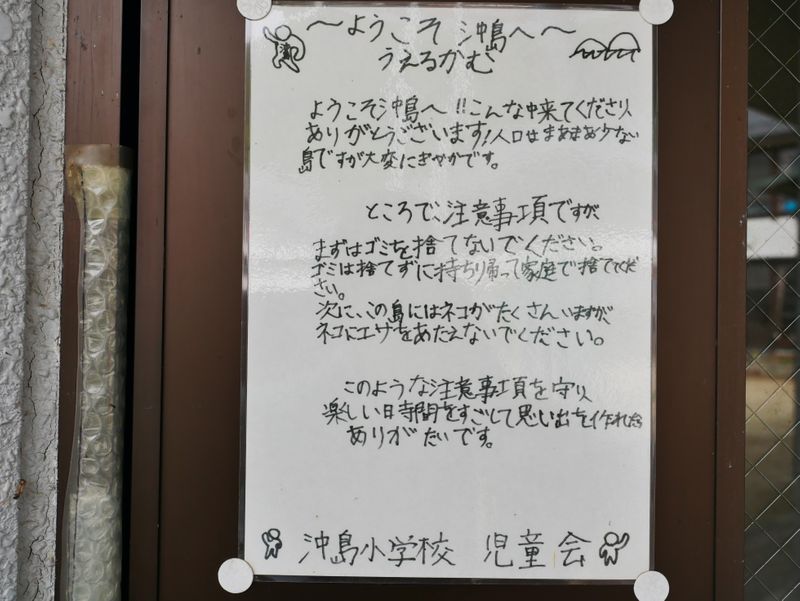 ～ようこそ 沖島へ～
うぇるかむ
ようこそ沖島へ!!こんな中来てくださり
ありがとうございます!人口はまあまあ少ない
島ですが大変にぎやかです。
ところで、注意事項ですが
まずはゴミを捨てないでください。
ゴミは捨てずに持ち帰って家庭で捨ててくだ
さい。
次に、この島にはネコがたくさんいますが、
ネコにエサをあたえないでください。
このような注意事項を守り
楽しい時間をすごして思い出を作れたら
ありがたいです。
沖島小学校 児童会